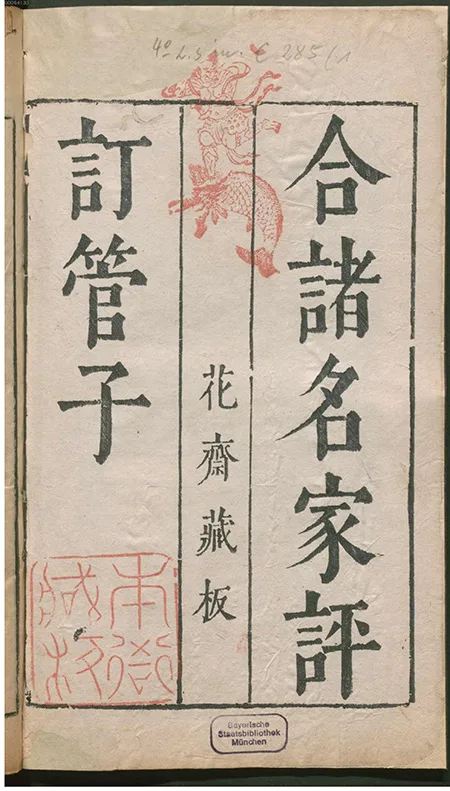 4º L. sin. C 285/1
合諸名家評
花齋藏板
訂管子
本衙
藏板
Bayerische
Staatsbibliothek
München